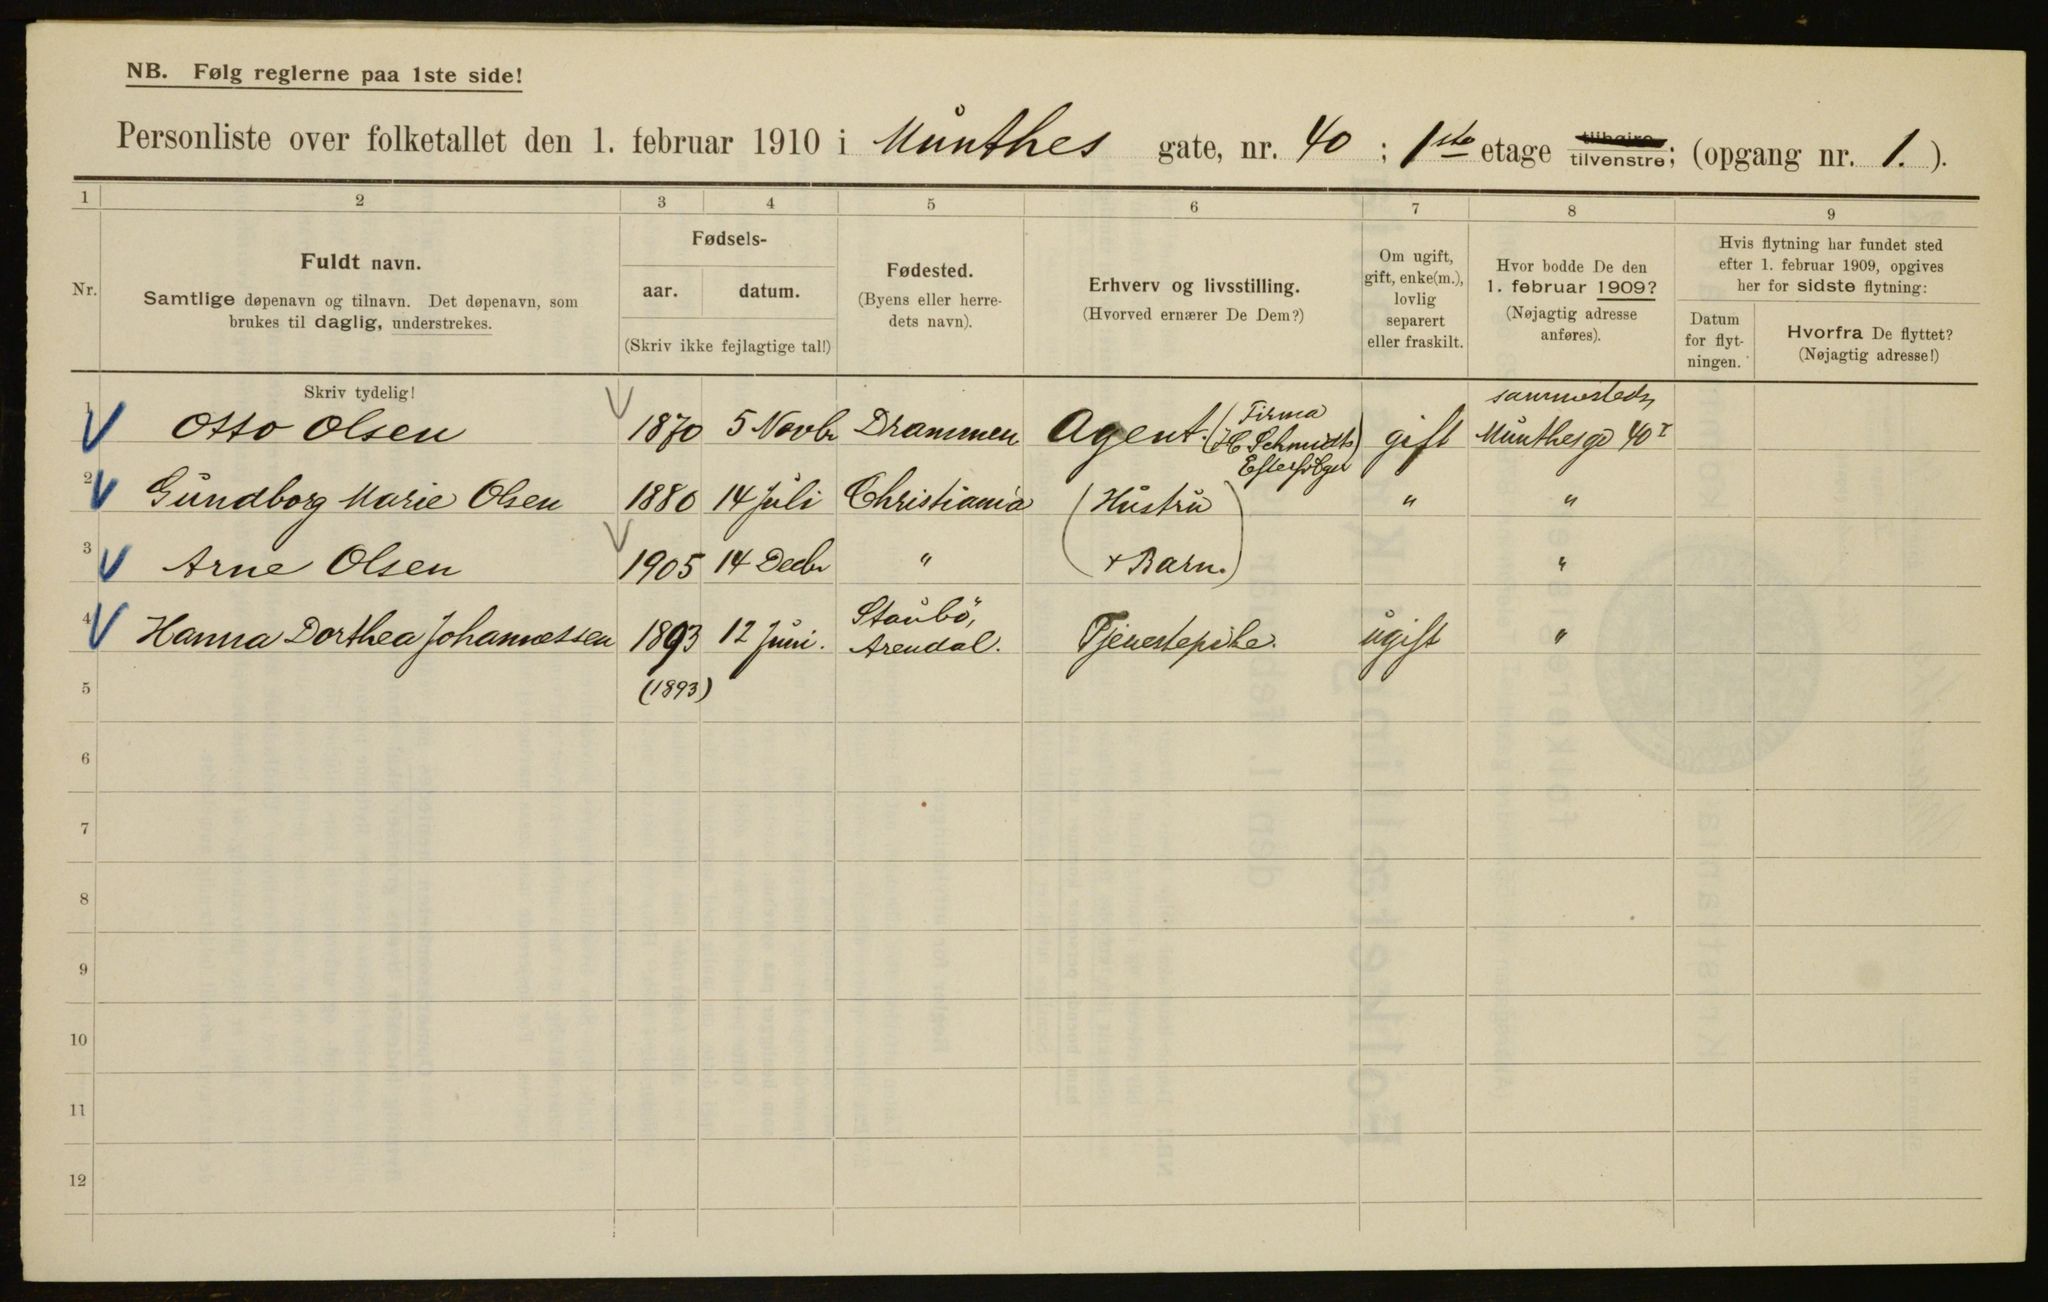 NB. Følg reglerne paa 1ste side!
Personliste over folketallet den 1. februar 1910 i Munthes gate, nr. 40; 1ste etage tilhøjre tilvenstre; (opgang nr. 1.).
1 2 3 4 5 6 7 8 9
Nr.
Fuldt navn.
Samtlige døpenavn og tilnavn. Det døpenavn, som
brukes til daglig, understrekes.
Fødsels-
aar. datum.
(Skriv ikke fejlagtige tal!)
Fødested.
(Byens eller herre-
dets navn).
Erhverv og livsstilling.
(Hvorved ernærer De Dem?)
Om ugift,
gift, enke(m.),
lovlig
separert
eller fraskilt.
Hvor bodde De den
1. februar 1909?
(Nøjagtig adresse
anføres).
Hvis flytning har fundet sted
efter 1. februar 1909, opgives
her for sidste flytning:
Datum
for flyt-
ningen.
Hvorfra De flyttet?
(Nøjagtig adresse!)
Skriv tydelig!
1 Otto Olsen 1870 5 Novbr Drammen Agent. (Firma H C Schmidts Efterfölger) gift sammesteds, Munthesgd 40 I
2 Gundborg Marie Olsen 1880 14 Juli Christiania (Hustru " "
3 Arne Olsen 1905 14 Decbr " + Barn.) "
4 Hanna Dorthea Johannessen 1893 12 Juni. Staubö, Arendal. Tjenestepike. ugift "
5 (1893)
6
7
8
9
10
11
12